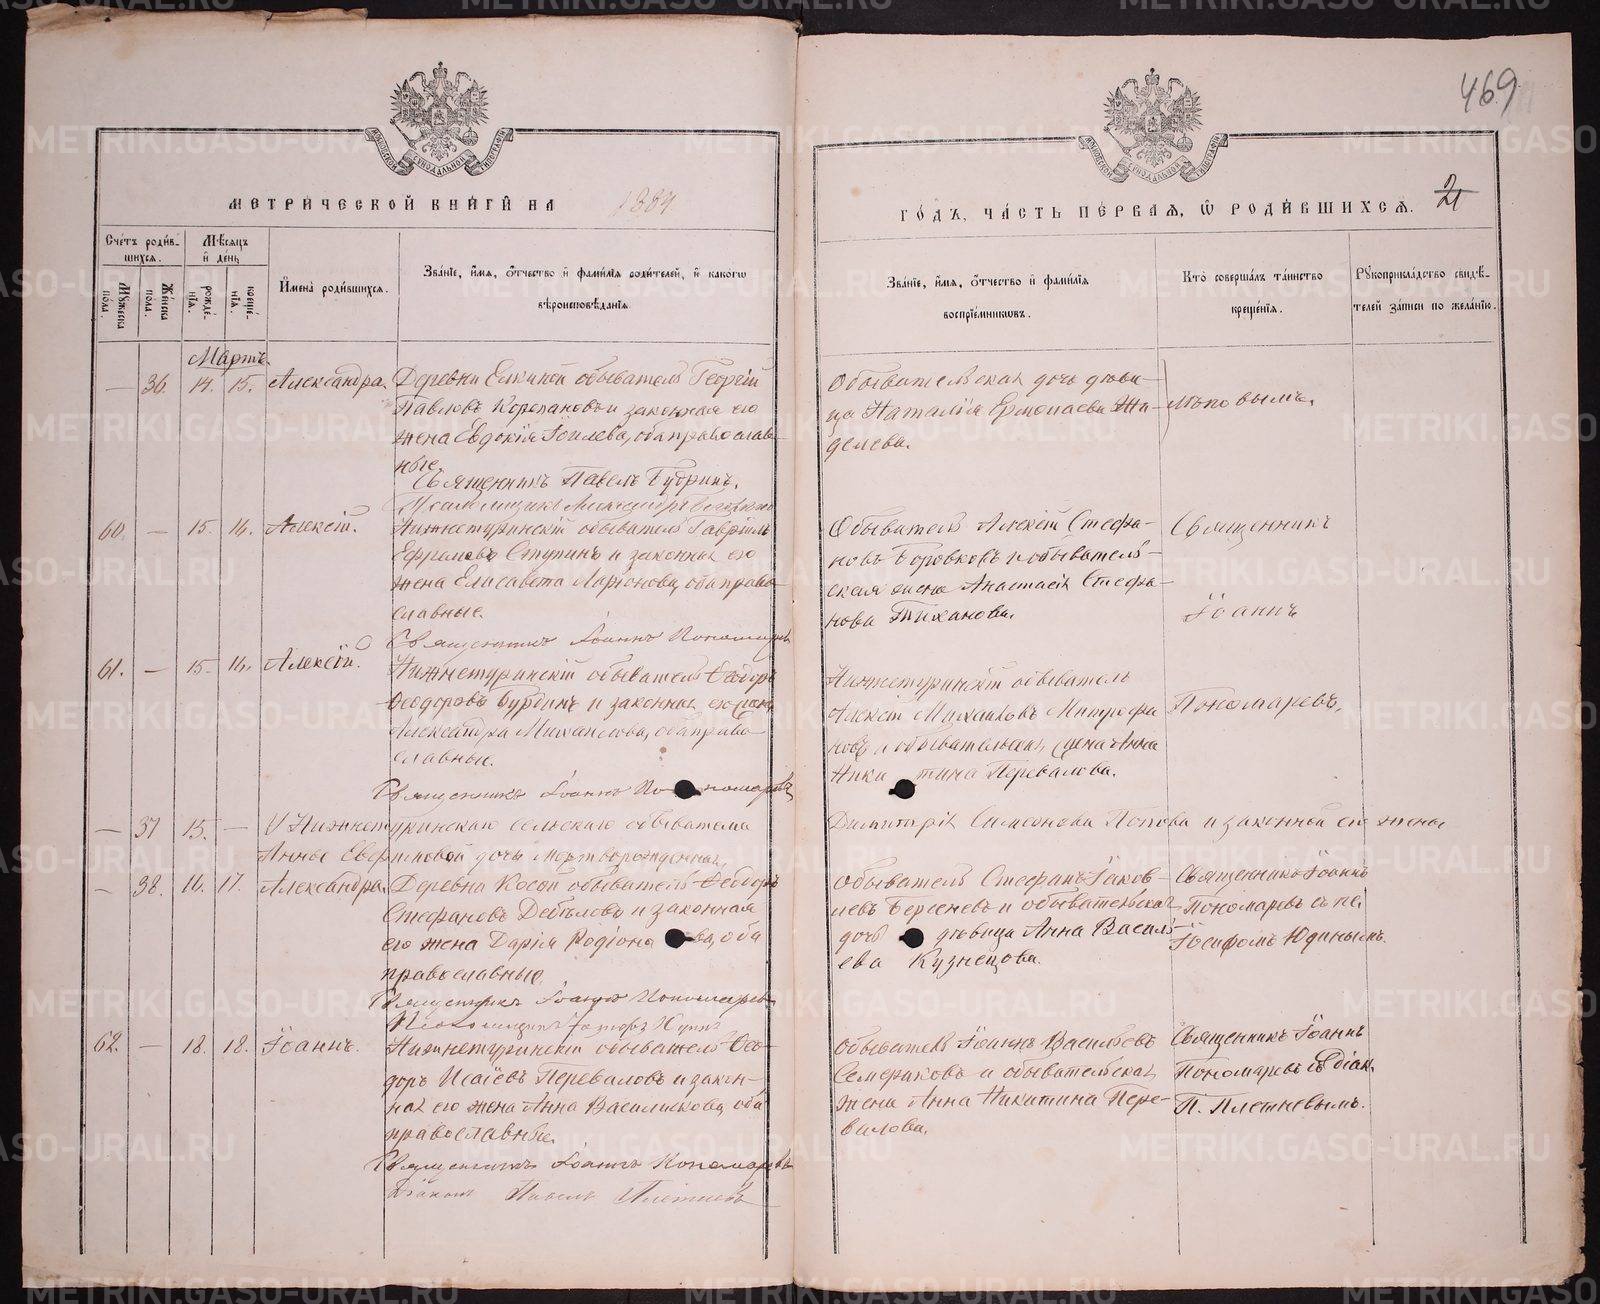 469
МЕТРИЧЕСКОЙ КНИГИ НА 1884
ГОДЪ, ЧАСТЬ ПЕРВАЯ, Ѡ РОДИВШИХСЯ. 21
Счетъ родив-
шихся.
Мѣсяцъ
и день
Мужеска пола.
Женска пола.
рожде-
нія.
креще-
нія.
Имена родившихся.
Званіе, имя, отчество и фамилія родителей, и какогѡ
вѣроисповѣданія.
Званіе, имя, отчество и фамилія
воспріемниковъ.
Кто совершалъ таинство
крещенія.
Рукоприкладство свидѣ-
телей записи по желанію.
Мартъ.
— 36. 14. 15. Александра.
Деревни Елкиной обыватель Георгій
Павловъ Корепановъ и законная его
жена Евдокія, оба православ-
ные.
Священникъ Павелъ
Обывательская дочь дѣви-
ца Наталія Ермолаева
делева.
60. — 15. 16. Алексій.
Нижнетуринскій обыватель Гавріилъ
Ефремовъ Ступинъ и законная его
жена Елисавета Ларіонова, оба право-
славные.
Священникъ Іоаннъ Пономаревъ
Обыватель Алексій Стефа-
новъ Боровковъ и обыватель-
ская жена Анастасія Стефа-
нова Тиханова.
Священникъ
Іоаннъ
Пономаревъ.
61. — 15. 16. Алексій.
Нижнетуринскій обыватель Ѳеодоръ
Ѳеодоровъ Бурдинъ и законная его жена
Александра Михаилова, оба право-
славные.
Священникъ Іоаннъ Пономаревъ
Нижнетуринскій обыватель
Алексій Михаиловъ Митрофа
новъ и обывательская жена Анна
Ники тина Перевалова.
— 37 15. — У Нижнетуринскаго сельскаго обывателя
Димитрія Симеонова Попова и законной его жены
Анны дочь мертворожденная.
— 38. 16. 17. Александра.
Деревни Косой обыватель Ѳеодоръ
Стефановъ Дебѣловъ и законная
его жена Дарія Родіоно ва, оба
православные.
Священникъ Іоаннъ Пономаревъ
Обыватель Стефанъ Іаков-
левъ Берсеневъ и обывательская
дочь дѣвица Анна Василь-
ева Кузнецова.
Священникъ Іоаннъ
Пономаревъ съ пс.
Іосифомъ Юдинымъ.
62. — 18. 18. Іоаннъ.
Нижнетуринскій обыватель Ѳео-
доръ Исаіевъ Переваловъ и закон-
ная его жена Анна Василькова, оба
православные.
Священникъ Іоаннъ Пономаревъ
Діаконъ Павелъ Плетневъ
Обыватель Іоаннъ Васильевъ
Семераковъ и обывательская
жена Анна Никитина Пере-
валова.
Священникъ Іоаннъ
Пономаревъ съ діак.
П. Плетневымъ.
METRIKI.GASO-URAL.RU